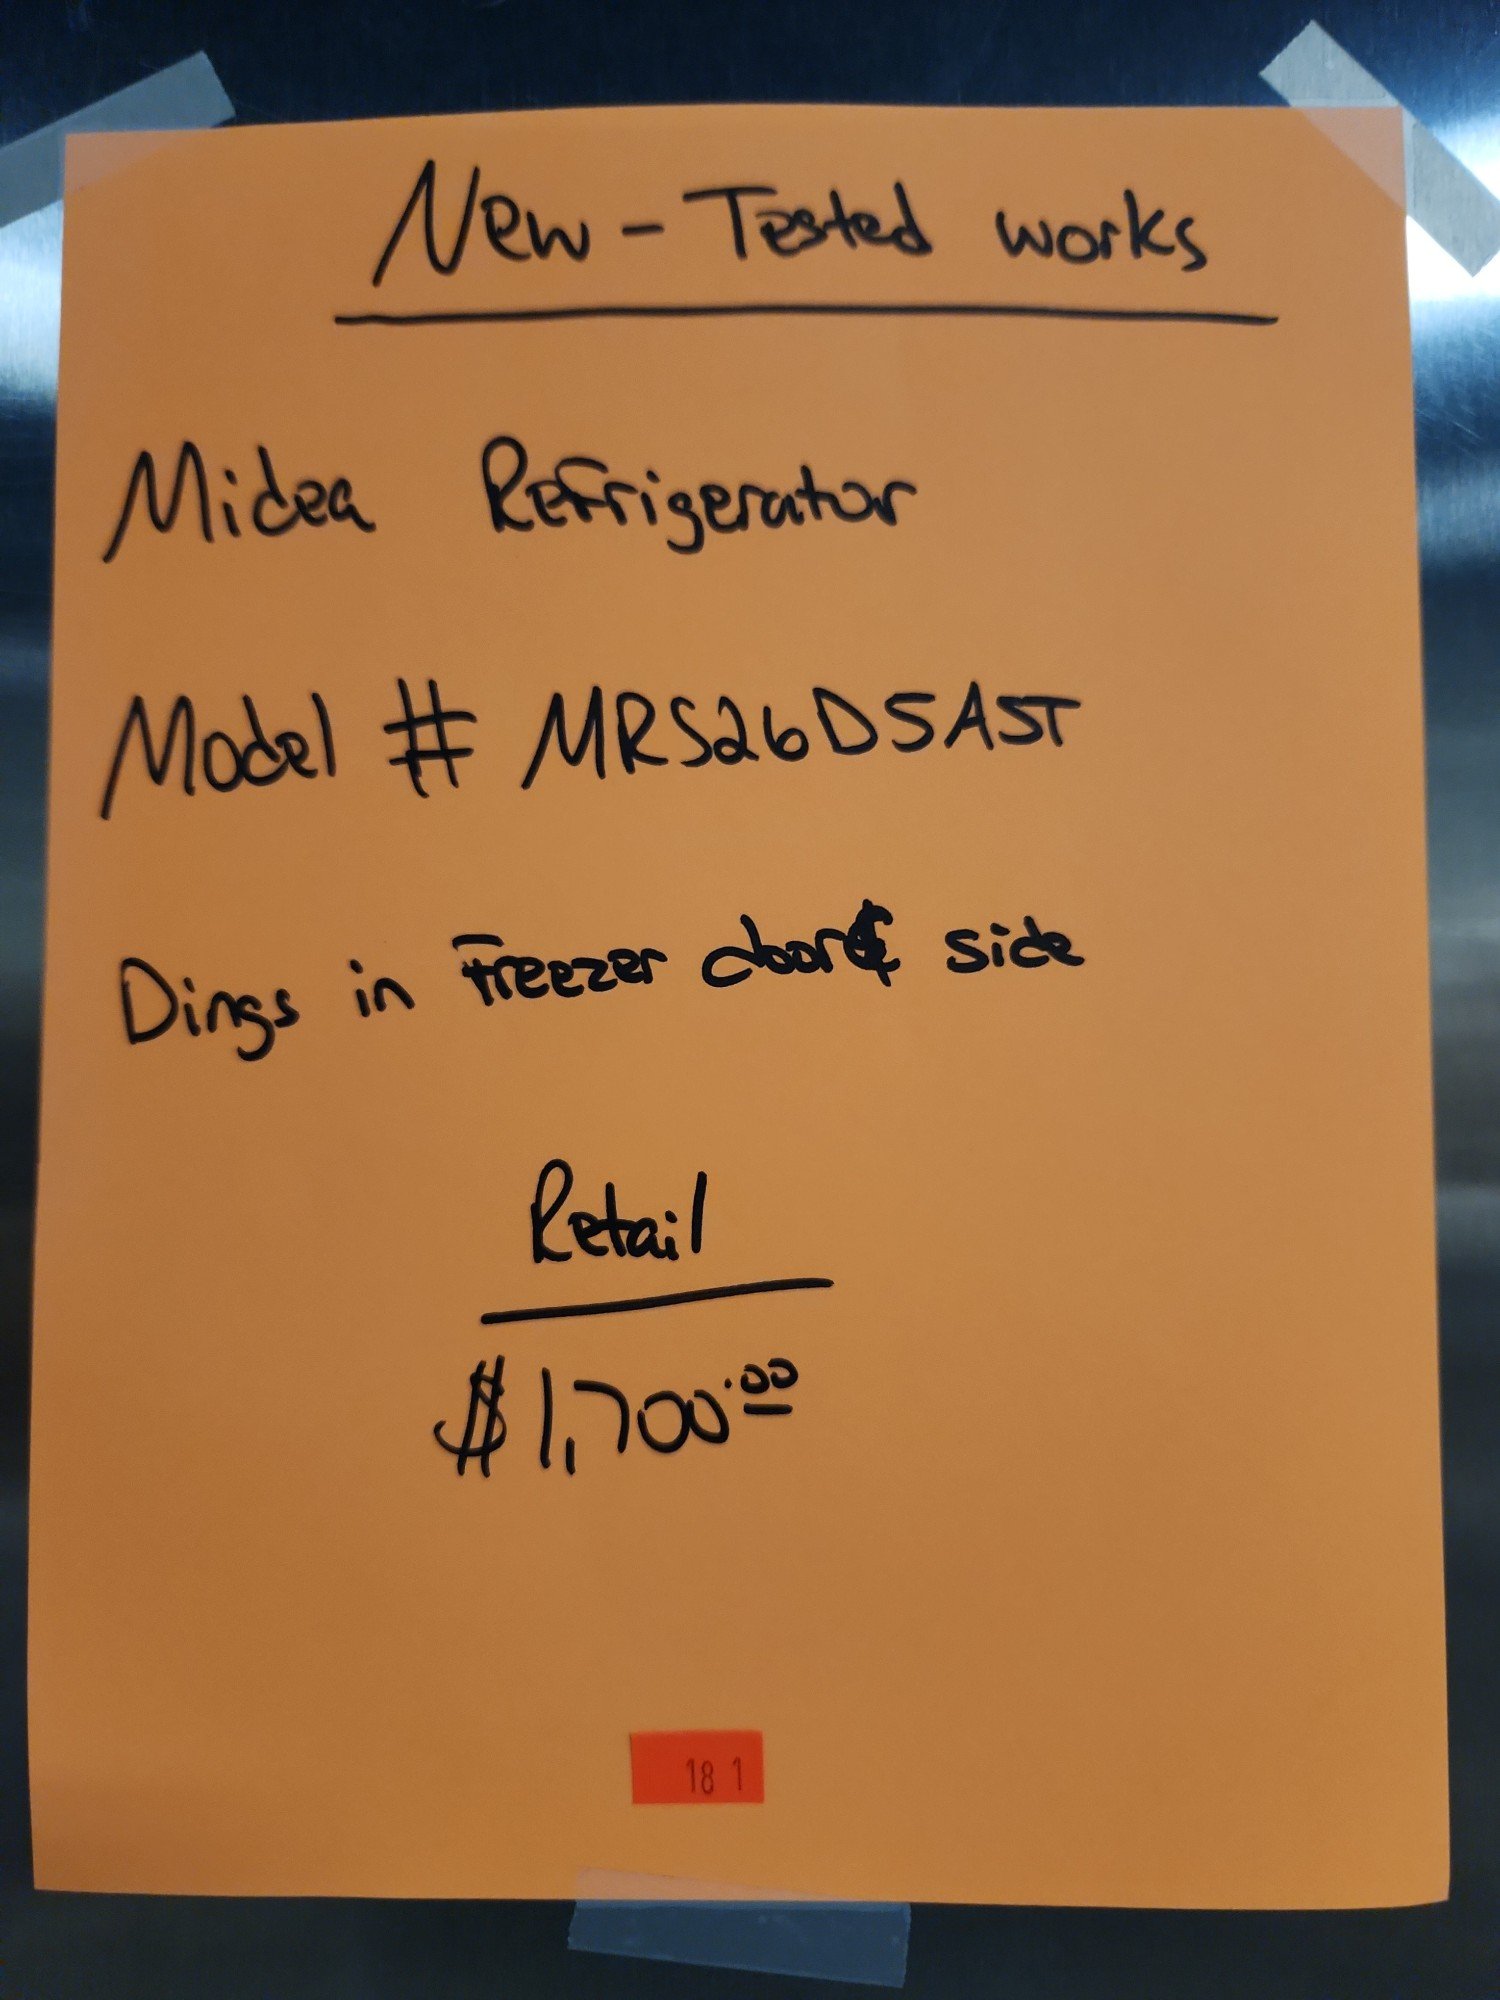 New - Tested works
Midea Refrigerator
Model # MRS26D5AST
Dings in Freezer door & side
Retail
$1,700.00
18 1